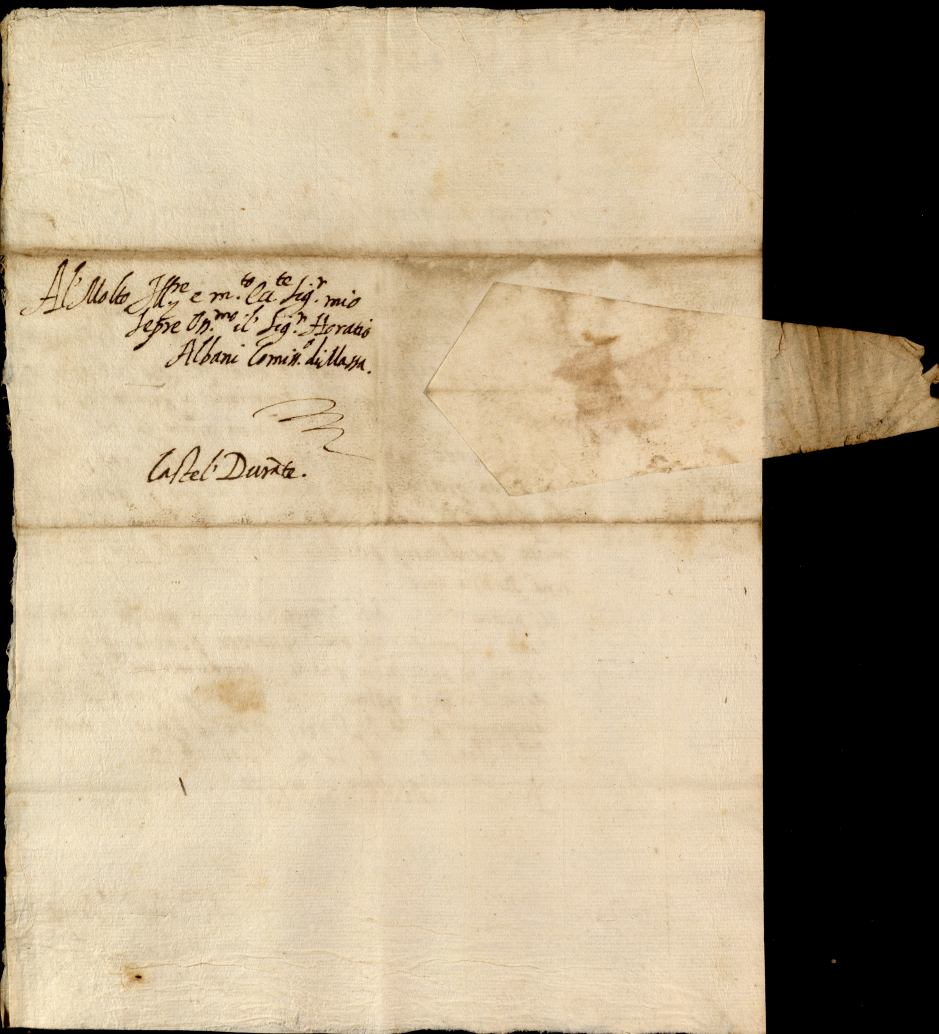 Al' Molto Ill.re e m.to Ca.te Sig.r mio
Sepre On.mo il' Sig.r Horatio
Albani Comiss.o di Massa.
Castel' Durāte.